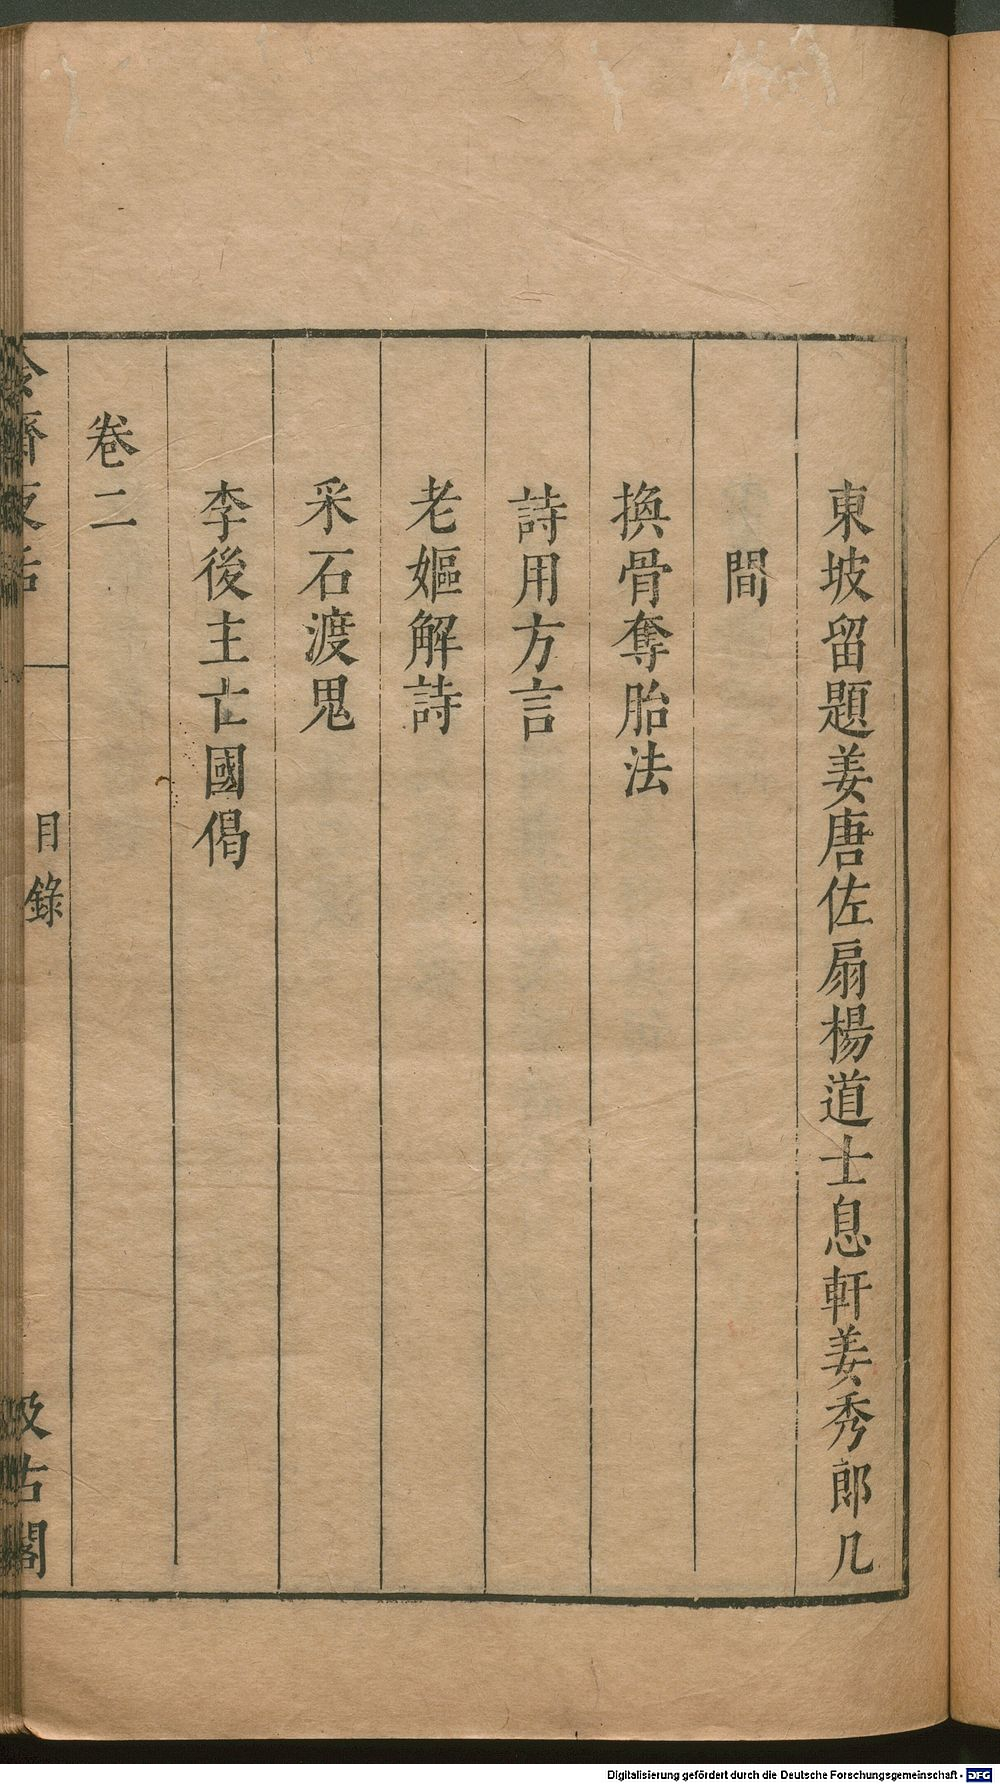 東坡留題姜唐佐扇楊道士息軒姜秀郎几
間
換骨奪胎法
詩用方言
老嫗解詩
采石渡鬼
李後主亡國偈
卷二
冷齋夜話
目錄
汲古閣
Digitalisierung gefördert durch die Deutsche Forschungsgemeinschaft - DFG